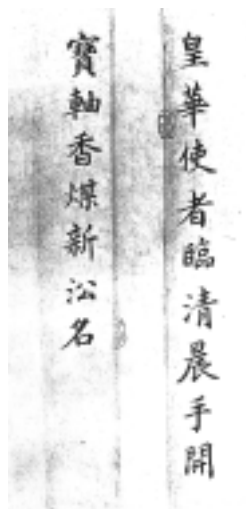 皇華使者臨清晨手開
寶軸香煤新汃名